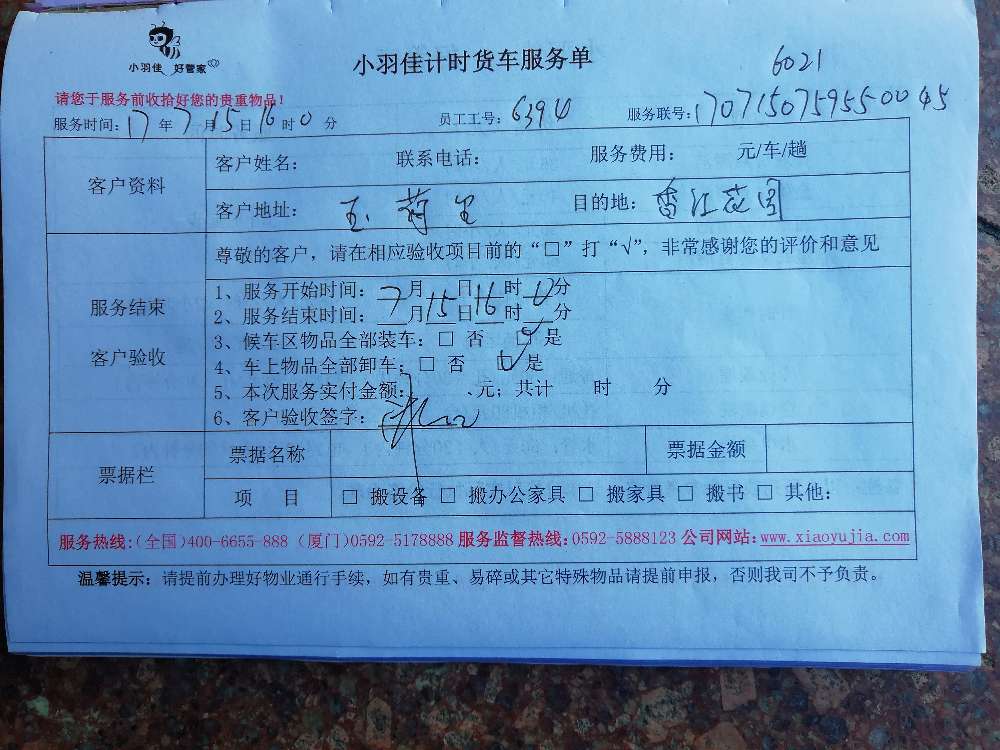 小羽佳 好管家
小羽佳计时货车服务单
6021
请您于服务前收拾好您的贵重物品！
服务时间：17年7月15日16时0分 员工工号：6394 服务联号：17071507595550045
客户资料
客户姓名： 联系电话： 服务费用： 元/车/趟
客户地址： 玉荷里 目的地：香江花园
服务结束
客户验收
尊敬的客户，请在相应验收项目前的“□”打“√”，非常感谢您的评价和意见
1、服务开始时间：7月15日16时0分
2、服务结束时间：__月__日__时__分
3、候车区物品全部装车：□ 否 ☑ 是
4、车上物品全部卸车：□ 否 ☑ 是
5、本次服务实付金额： 、元；共计 时 分
6、客户验收签字：
票据栏
票据名称 票据金额
项 目 □ 搬设备 □ 搬办公家具 □ 搬家具 □ 搬书 □ 其他：
服务热线:(全国)400-6655-888 (厦门)0592-5178888 服务监督热线:0592-5888123 公司网站:www.xiaoyujia.com
温馨提示：请提前办理好物业通行手续，如有贵重、易碎或其它特殊物品请提前申报，否则我司不予负责。